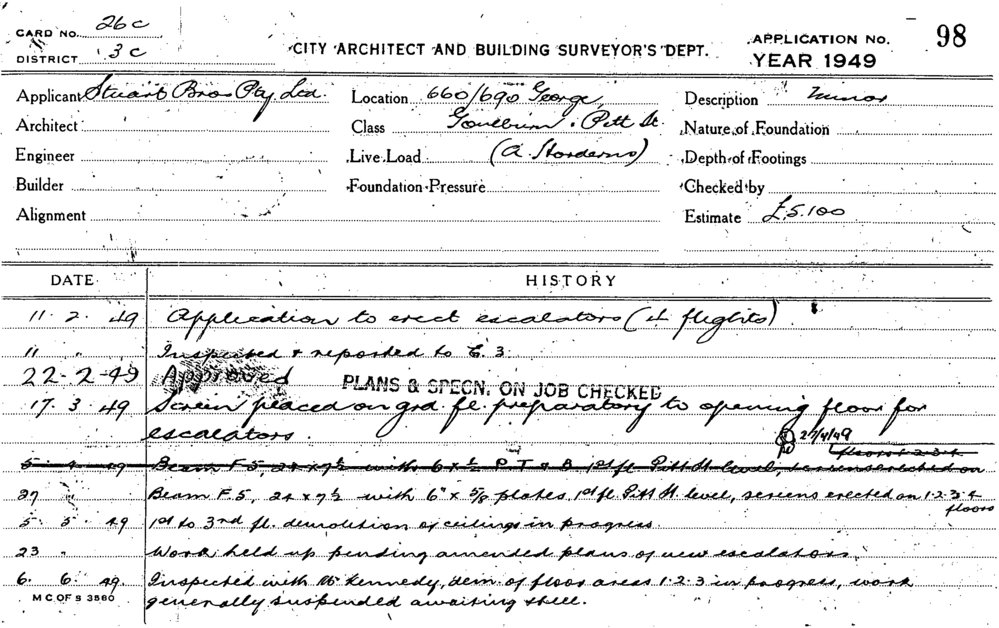 CARD No. 26c
DISTRICT 3c
CITY ARCHITECT AND BUILDING SURVEYOR'S DEPT.
APPLICATION No. 98
YEAR 1949
Applicant Stuart Bros Pty Ltd
Architect
Engineer
Builder
Alignment
Location 660/690 George,
Class Goulburn & Pitt St.
Live Load (A. Horderns)
Foundation Pressure
Description Minor
Nature of Foundation
Depth of Footings
Checked by
Estimate £5.100
DATE HISTORY
11. 2. 49 Application to erect escalators (4 flights)
11 " Inspected & reported to E. 3.
22-2-49 Approved PLANS & SPECN. ON JOB CHECKED
17. 3. 49 Screen placed on grd. fl. preparatory to opening floor for
escalators. 27/4/49
floors 1.2.3.4
5. 4. 49 Beam F.5, 24 x 7½ with 6 x ½ P T & B 1st fl. Pitt St level, screens erected on
27 " Beam F.5, 24 x 7½ with 6" x 5/8 plates, 1st fl. Pitt St. level, screens erected on 1.2.3.4
floors
5. 5. 49 1st to 3rd fl. demolition of ceilings in progress.
23 " Work held up pending amended plans of new escalators.
6. 6. 49. Inspected with Mr Kennedy, dem. of floor areas 1.2.3 in progress, work
generally suspended awaiting steel.
M C OF S 3580